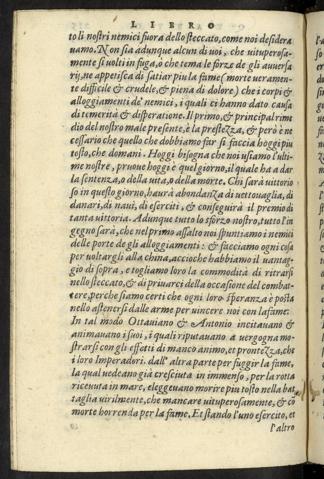 LIBRO
to li nostri nemici fuora dello steccato, come noi desidera
uamo. Non sia adunque alcun di uoi, che uituperosa-
mente si uolti in fuga, ò che tema le forze de gli auuersa
rij, ne apetisca di satiar piu la fame (morte ueramen-
te difficile & crudele, & piena di dolore) che i corpi &
alloggiamenti de' nemici, i quali ci hanno dato causa
di temerità & disperatione. Il primo, & principal rime
dio del nostro male presente, è la prestezza, & però è ne
cessario che quello che dobbiamo far si faccia hoggi piu
tosto, che domani. Hoggi bisogna che noi usiamo l'ulti-
me nostre, pruoue hoggi è quel giorno, il quale ha a dar
la sentenza, o della uita, o della morte. Chi sarà uittorio
so in questo giorno, haurà abondanza di uettouaglia, di
danari, di naui, di eserciti, & conseguirà il premio di
tanta uittoria. Adunque tutto lo sforzo nostro, tutto l'in
gegno sarà, che nel primo assalto noi spuntiamo i nemici
delle porte de gli alloggiamenti: & facciamo ogni cosa
per uoltargli alla china, accioche habbiamo il uantag-
gio di sopra, e togliamo loro la commodità di ritrarsi
nello steccato, & di priuarci della occasione del combat-
tere, perche siamo certi che ogni loro speranza è posta
nello astenersi dalle arme per uincere noi con la fame.
In tal modo Ottauiano & Antonio incitauano &
animauano i suoi, i quali riputauano a uergogna mo-
strarsi con gli effetti di manco animo, et prontezza, che
i loro Imperadori. dall'altra parte per fuggir la fame,
la qual uedeano già cresciuta in immenso, per la rotta
riceuuta in mare, eleggeuano morire piu tosto nella bat
taglia uirilmente, che mancare uituperosamente, & cō
morte horrenda per la fame, Et stando l'uno esercito, et
l'altro